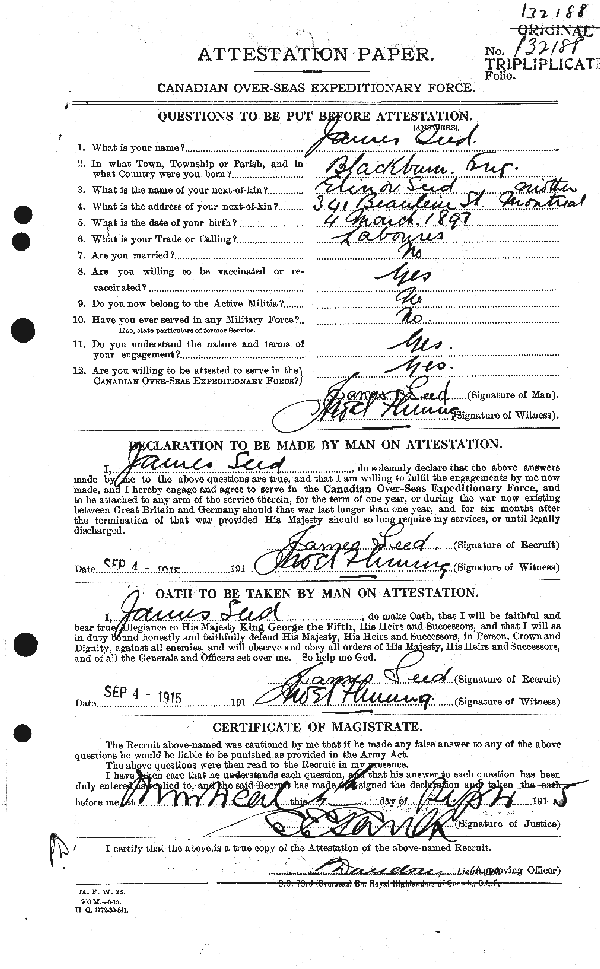 132188
ORIGINAL
ATTESTATION PAPER.
No. 132188
TRIPLIPLICATE
Folio.
CANADIAN OVER-SEAS EXPEDITIONARY FORCE.
QUESTIONS TO BE PUT BEFORE ATTESTATION.
(ANSWERS).
1. What is your name? James Seed.
2. In what Town, Township or Parish, and in
what Country were you born? Blackburn, Eng.
3. What is the name of your next-of-kin? Seed mother
4. What is the address of your next-of-kin? 341 St. Montreal
5. What is the date of your birth? 4 March. 1897
6. What is your Trade or Calling? Labourer
7. Are you married? No
8. Are you willing to be vaccinated or re-
vaccinated? Yes
9. Do you now belong to the Active Militia? No
10. Have you ever served in any Military Force? No.
If so, state particulars of former Service.
11. Do you understand the nature and terms of
your engagement? Yes.
12. Are you willing to be attested to serve in the
CANADIAN OVER-SEAS EXPEDITIONARY FORCE? Yes.
James Seed (Signature of Man).
Fleming (Signature of Witness).
DECLARATION TO BE MADE BY MAN ON ATTESTATION.
I, James Seed, do solemnly declare that the above answers
made by me to the above questions are true, and that I am willing to fulfil the engagements by me now
made, and I hereby engage and agree to serve in the Canadian Over-Seas Expeditionary Force, and
to be attached to any arm of the service therein, for the term of one year, or during the war now existing
between Great Britain and Germany should that war last longer than one year, and for six months after
the termination of that war provided His Majesty should so long require my services, or until legally
discharged.
James Seed (Signature of Recruit)
Date SEP 4 - 1915 191 Fleming (Signature of Witness)
OATH TO BE TAKEN BY MAN ON ATTESTATION.
I, James Seed, do make Oath, that I will be faithful and
bear true Allegiance to His Majesty King George the Fifth, His Heirs and Successors, and that I will as
in duty bound honestly and faithfully defend His Majesty, His Heirs and Successors, in Person, Crown and
Dignity, against all enemies, and will observe and obey all orders of His Majesty, His Heirs and Successors,
and of all the Generals and Officers set over me. So help me God.
James Seed (Signature of Recruit)
Date SEP 4 - 1915 191 Fleming (Signature of Witness)
CERTIFICATE OF MAGISTRATE.
The Recruit above-named was cautioned by me that if he made any false answer to any of the above
questions he would be liable to be punished as provided in the Army Act.
The above questions were then read to the Recruit in my presence.
I have taken care that he understands each question, and that his answer to each question has been
duly entered as replied to, and the said Recruit has made and signed the declaration and taken the oath
before me, at Montreal this 4 day of Sept 1915
(Signature of Justice)
I certify that the above is a true copy of the Attestation of the above-named Recruit.
(Approving Officer)
M. F. W. 23.
H. Q. 1772-39-841.